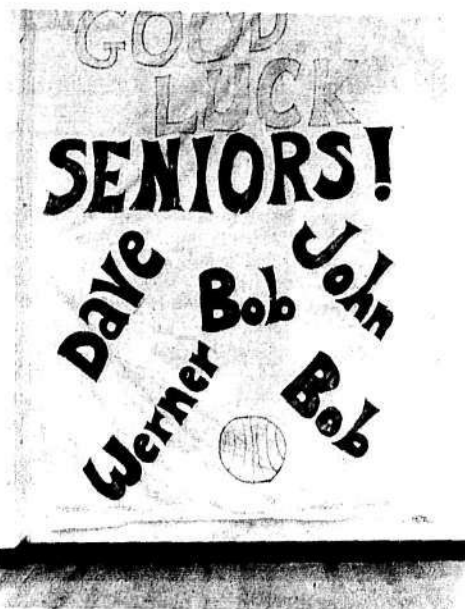 GOOD
LUCK
SENIORS!
Dave
Bob
John
Werner
Bob